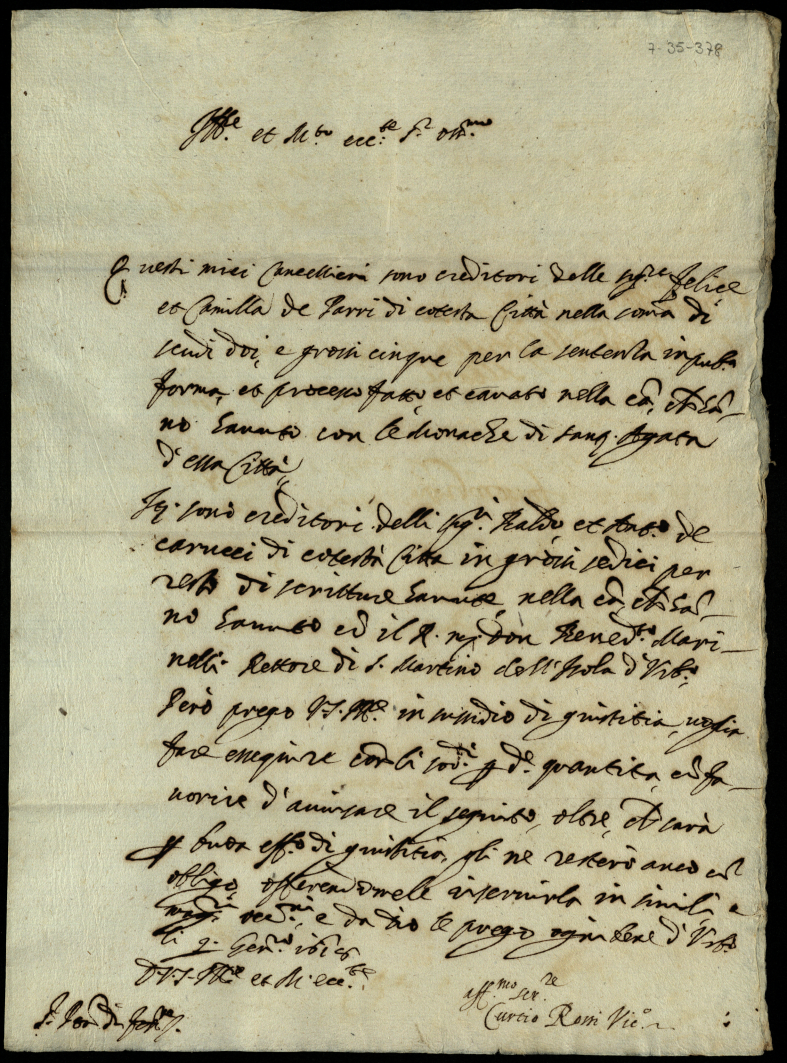 7-35-378
Ill.re et M.to ecc.te S.r oss.mo
Questi miei Cancellieri sono creditori delle sig.re Felice
et Camilla de Parri di cotesta Città nella soma di
scudi doi, e grossi cinque per la sentenza in pub.a
forma, et processo fatto, et cavato nella cã, ch hã-
no havuto con le Monache di sant. Agata
d'essa Città,
It. sono creditori delli sig.ri et Ant.o de
carucci di cotesta Città in grossi sedici per
resto di scritture havute, nella cã, ch hã-
no havuto cõ il R. don Bened.o Mari-
nelli Rettore di S. Martino dell'Isola d'Urb.o
Però prego V.S. Ill.re in sussidio di giustitia, voglia
fare essequire con li sod.i p d.e quantita, cõ fa-
uorire d'auisare il seguito, oltre, ch sarà
p buon eff.o di giustitia, gli ne resterò anco cõ
obligo offerendomele inseruirla in simili e
magg.ri occ.ni, e da Dio le prego ogni bene d'Urb.o
li 9. Gen.ro
D. V. S. Ill.re et M. ecc.te
aff.mo ser.re
Curtio Rossi Vic.o